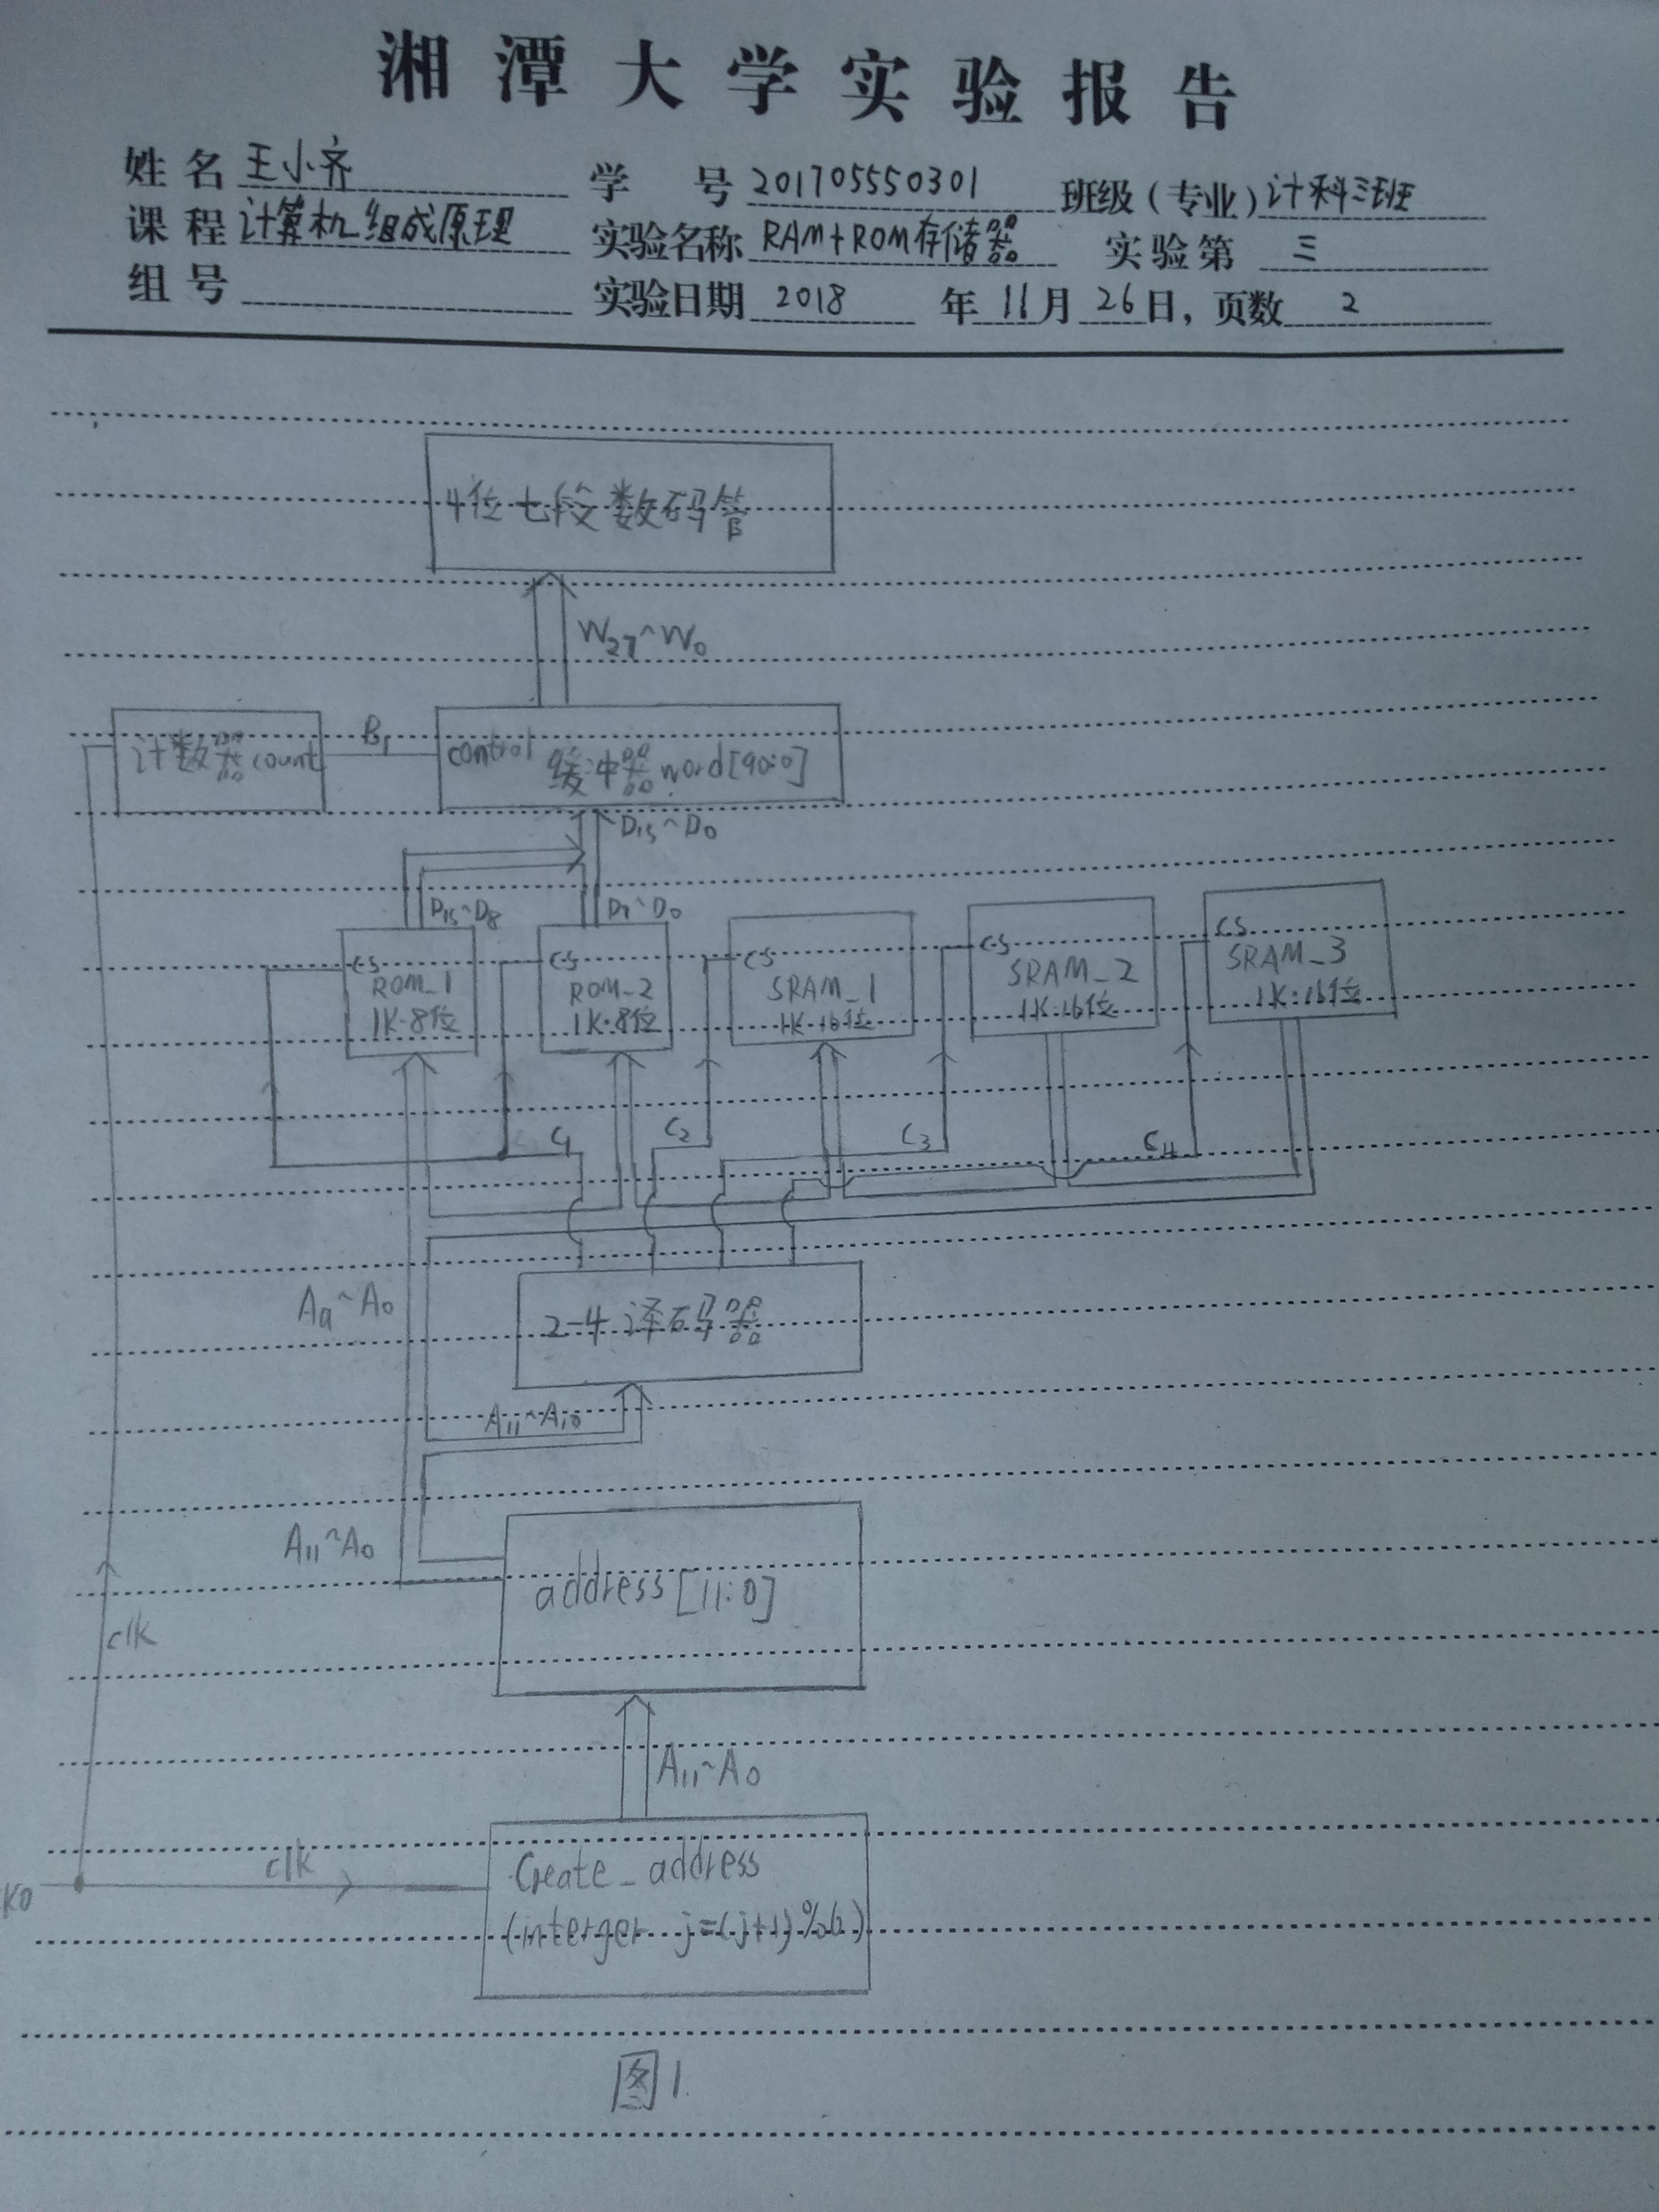 湘潭大学实验报告
姓名 王小齐 学号 201705550301 班级(专业) 计科三班
课程 计算机组成原理 实验名称 RAM+ROM存储器 实验第 三
组号 实验日期 2018 年 11 月 26 日, 页数 2
4位七段数码管
W27~W0
计数器count B1 control 缓冲器word[90:0]
D15~D0
D15~D8 D7~D0
CS CS CS CS CS
ROM_1 ROM_2 SRAM_1 SRAM_2 SRAM_3
1K·8位 1K·8位 1K·16位 1K·16位 1K·16位
C1 C2 C3 C4
A9~A0
2-4译码器
A11~A10
A11~A0
address[11:0]
clk
A11~A0
K0 clk
Create_address
(interger j=(j+1)%6)
图1